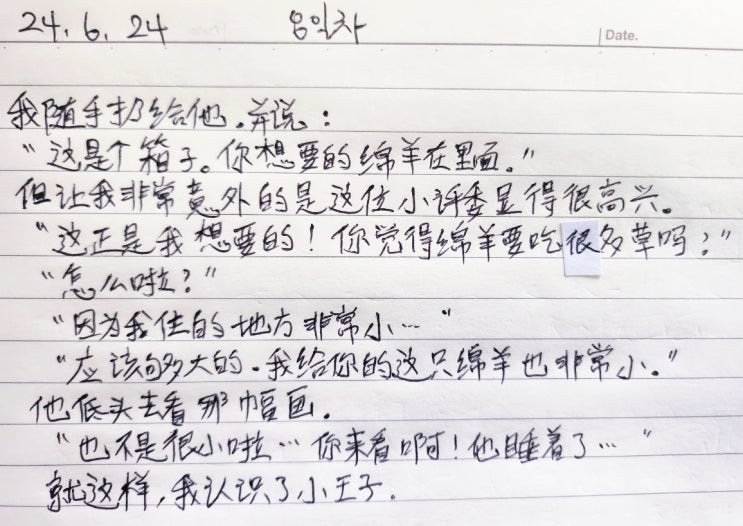 24.6.24 8일차 Date.
我随手扔给他.并说：
“这是个箱子。你想要的绵羊在里面。”
但让我非常意外的是这位小评委显得很高兴。
“这正是我想要的！你觉得绵羊要吃很多草吗？”
“怎么啦？”
“因为我住的地方非常小…”
“应该够大的.我给你的这只绵羊也非常小。”
他低头去看那幅画.
“也不是很小啦…你来看啊！他睡着了…”
就这样,我认识了小王子.